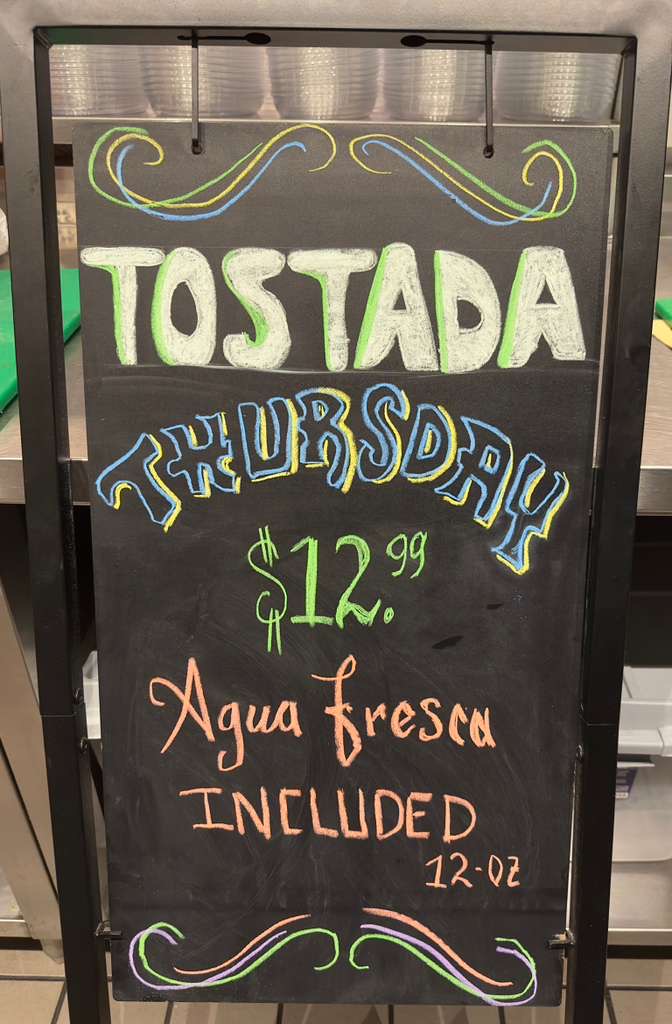 TOSTADA
THURSDAY
$12.99
Agua fresca
INCLUDED
12-OZ